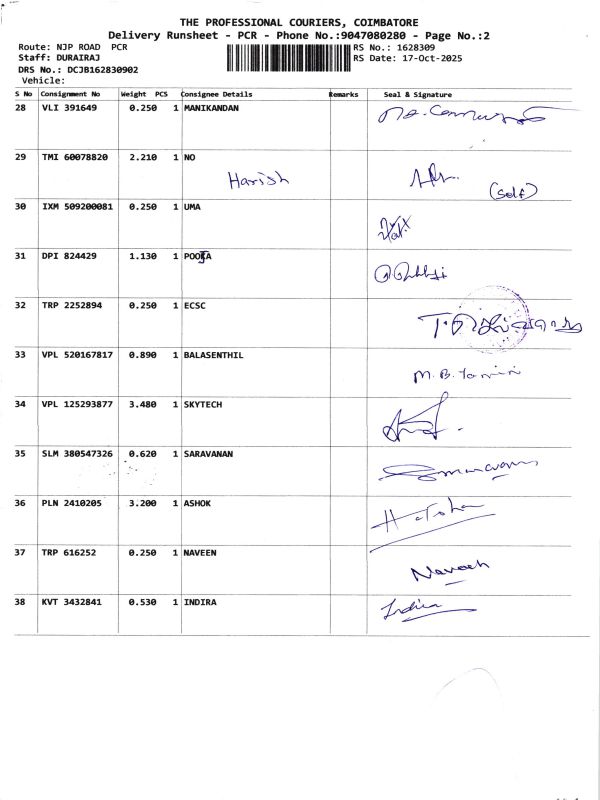 THE PROFESSIONAL COURIERS, COIMBATORE
Delivery Runsheet - PCR - Phone No.:9047080280 - Page No.:2
Route: NJP ROAD PCR RS No.: 1628309
Staff: DURAIRAJ RS Date: 17-Oct-2025
DRS No.: DCJB162830902
Vehicle:
S No Consignment No Weight PCS Consignee Details Remarks Seal & Signature
28 VLI 391649 0.250 1 MANIKANDAN
29 TMI 60078820 2.210 1 NO
Harish (Self)
30 IXM 509200081 0.250 1 UMA
31 DPI 824429 1.130 1 POOJA
32 TRP 2252894 0.250 1 ECSC
33 VPL 520167817 0.890 1 BALASENTHIL
M.B.
34 VPL 125293877 3.480 1 SKYTECH
35 SLM 380547326 0.620 1 SARAVANAN
36 PLN 2410205 3.200 1 ASHOK
37 TRP 616252 0.250 1 NAVEEN
Naveen
38 KVT 3432841 0.530 1 INDIRA
Indira